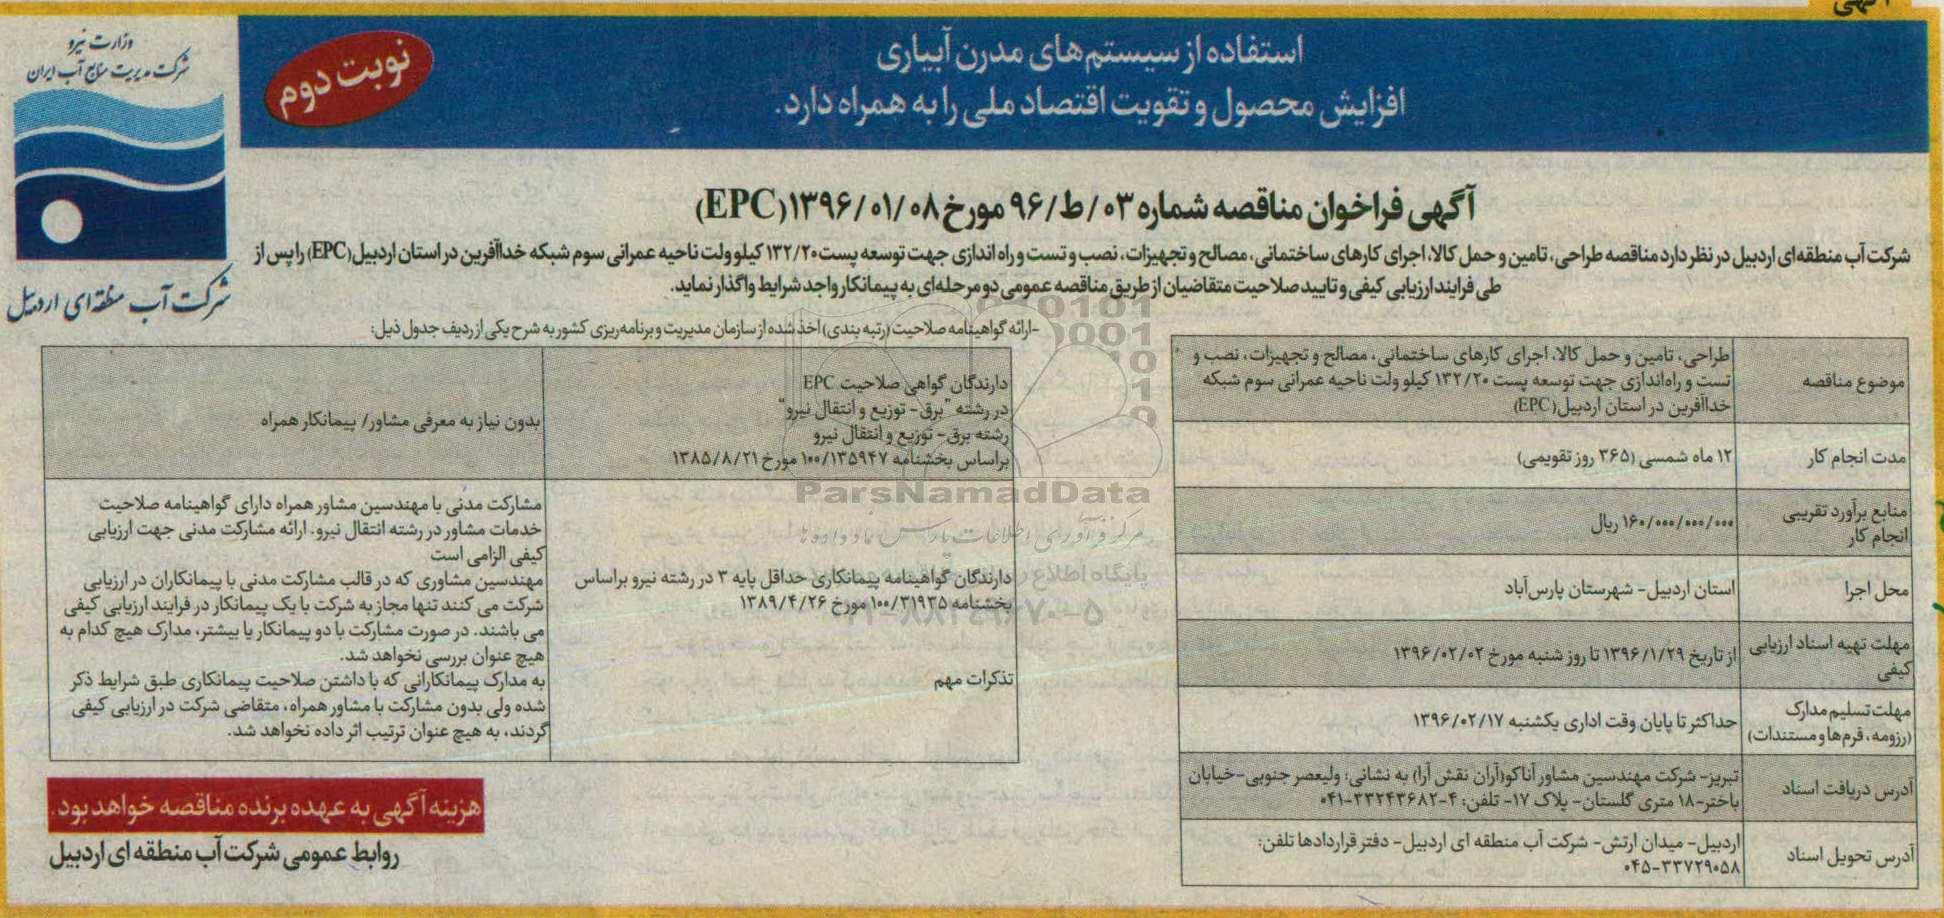 وزارت نیرو
شرکت مدیریت منابع آب ایران
شرکت آب منطقه‌ای اردبیل
استفاده از سیستم‌های مدرن آبیاری
افزایش محصول و تقویت اقتصاد ملی را به همراه دارد.
نوبت دوم
آگهی فراخوان مناقصه شماره ۰۳/ط/۹۶ مورخ ۱۳۹۶/۰۱/۰۸(EPC)
شرکت آب منطقه‌ای اردبیل در نظر دارد مناقصه طراحی، تامین و حمل کالا، اجرای کارهای ساختمانی، مصالح و تجهیزات، نصب و تست و راه اندازی جهت توسعه پست ۱۳۲/۲۰ کیلو ولت ناحیه عمرانی سوم شبکه خداآفرین در استان اردبیل(EPC) را پس از
طی فرایند ارزیابی کیفی و تایید صلاحیت متقاضیان از طریق مناقصه عمومی دو مرحله‌ای به پیمانکار واجد شرایط واگذار نماید.
موضوع مناقصه
طراحی، تامین و حمل کالا، اجرای کارهای ساختمانی، مصالح و تجهیزات، نصب و
تست و راه‌اندازی جهت توسعه پست ۱۳۲/۲۰ کیلو ولت ناحیه عمرانی سوم شبکه
خداآفرین در استان اردبیل(EPC)
مدت انجام کار
۱۲ ماه شمسی (۳۶۵ روز تقویمی)
منابع برآورد تقریبی
انجام کار
۱۶۰/۰۰۰/۰۰۰/۰۰۰ ریال
محل اجرا
استان اردبیل- شهرستان پارس‌آباد
مهلت تهیه اسناد ارزیابی
کیفی
از تاریخ ۱۳۹۶/۱/۲۹ تا روز شنبه مورخ ۱۳۹۶/۰۲/۰۲
مهلت تسلیم مدارک
(رزومه، فرم‌ها و مستندات)
حداکثر تا پایان وقت اداری یکشنبه ۱۳۹۶/۰۲/۱۷
آدرس دریافت اسناد
تبریز- شرکت مهندسین مشاور آناکو(آران نقش آرا) به نشانی: ولیعصر جنوبی-خیابان
باختر-۱۸ متری گلستان- پلاک ۱۷- تلفن: ۴-۳۳۲۴۳۶۸۲-۰۴۱
آدرس تحویل اسناد
اردبیل- میدان ارتش- شرکت آب منطقه ای اردبیل- دفتر قراردادها تلفن:
۰۴۵-۳۳۷۲۹۰۵۸
-ارائه گواهینامه صلاحیت (رتبه بندی) اخذ شده از سازمان مدیریت و برنامه‌ریزی کشور به شرح یکی از ردیف جدول ذیل:
دارندگان گواهی صلاحیت EPC
در رشته "برق- توزیع و انتقال نیرو"
رشته برق- توزیع و انتقال نیرو
براساس بخشنامه ۱۰۰/۱۳۵۹۴۷ مورخ ۱۳۸۵/۸/۲۱
بدون نیاز به معرفی مشاور/ پیمانکار همراه
دارندگان گواهینامه پیمانکاری حداقل پایه ۳ در رشته نیرو براساس
بخشنامه ۱۰۰/۳۱۹۳۵ مورخ ۱۳۸۹/۴/۲۶
تذکرات مهم
مشارکت مدنی با مهندسین مشاور همراه دارای گواهینامه صلاحیت
خدمات مشاور در رشته انتقال نیرو. ارائه مشارکت مدنی جهت ارزیابی
کیفی الزامی است
مهندسین مشاوری که در قالب مشارکت مدنی با پیمانکاران در ارزیابی
شرکت می کنند تنها مجاز به شرکت با یک پیمانکار در فرایند ارزیابی کیفی
می باشند. در صورت مشارکت با دو پیمانکار یا بیشتر، مدارک هیچ کدام به
هیچ عنوان بررسی نخواهد شد.
به مدارک پیمانکارانی که با داشتن صلاحیت پیمانکاری طبق شرایط ذکر
شده ولی بدون مشارکت با مشاور همراه، متقاضی شرکت در ارزیابی کیفی
گردند، به هیچ عنوان ترتیب اثر داده نخواهد شد.
ParsNamadData
مرکز فرآوری اطلاعات پارس نماد داده ها
هزینه آگهی به عهده برنده مناقصه خواهد بود.
روابط عمومی شرکت آب منطقه ای اردبیل